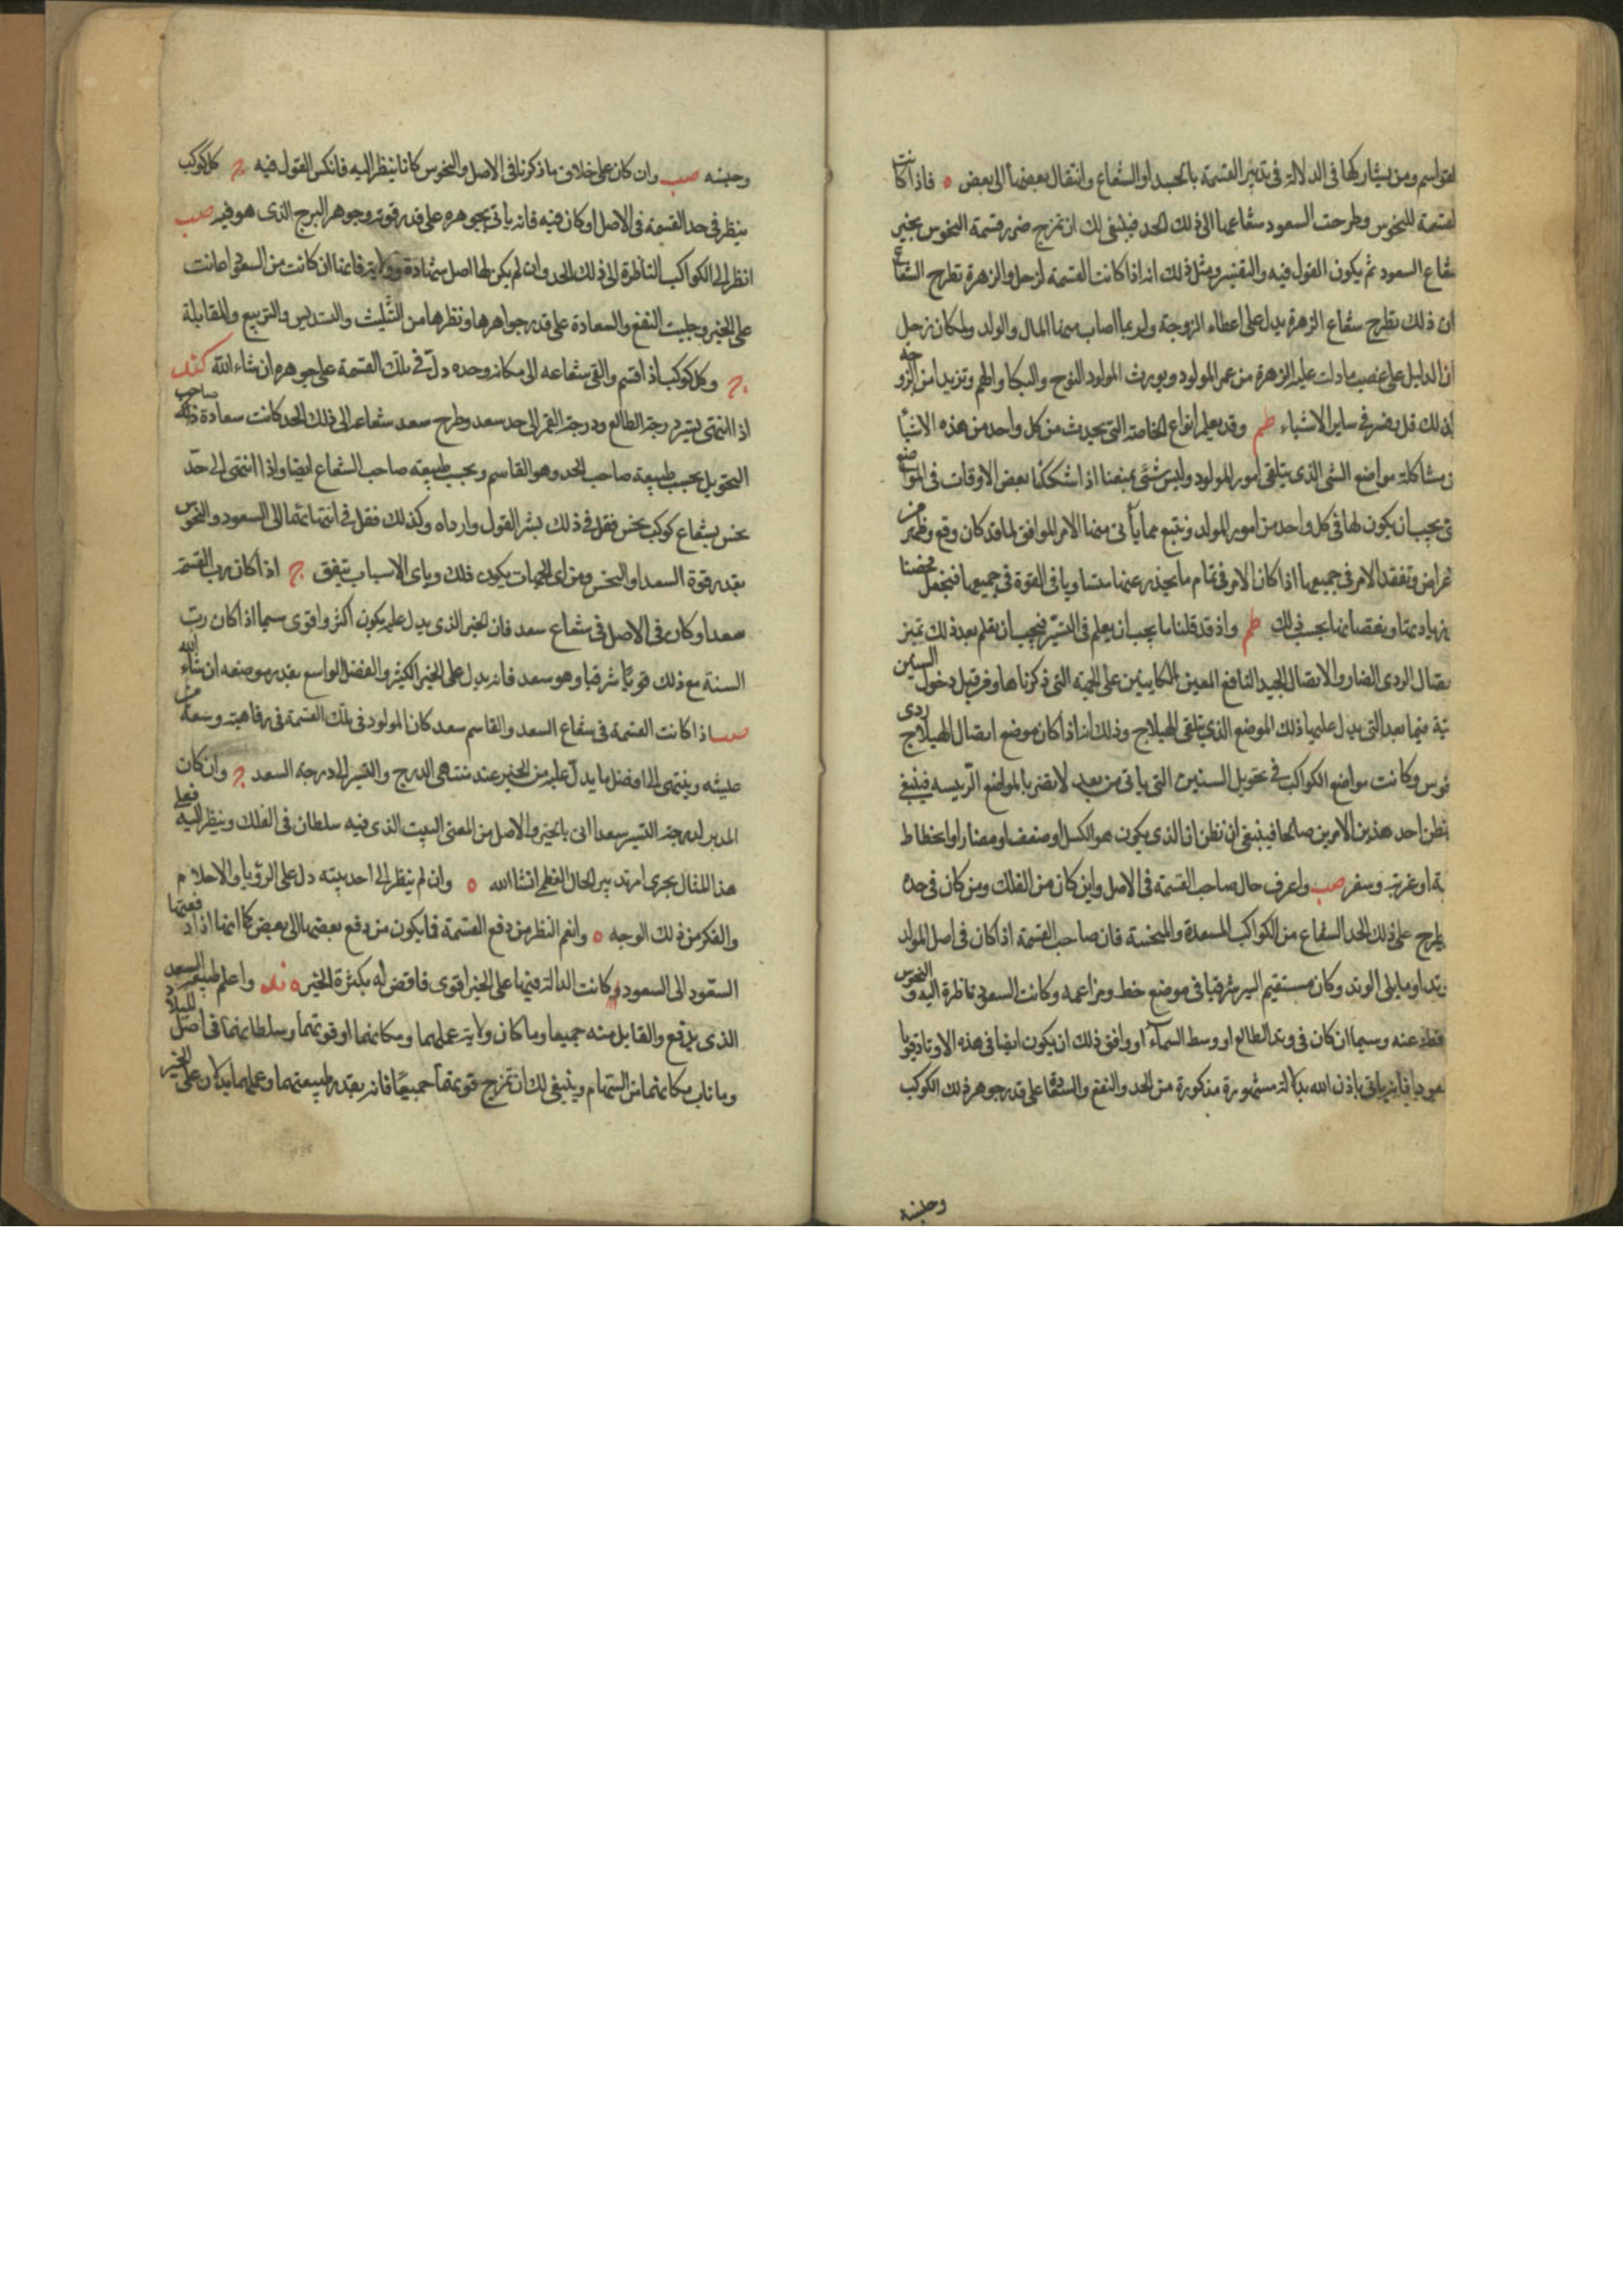 القواسم ومن يشاركها في الدلالة في تدبير القسمة بالجسد او الشعاع وانتقال بعضها الى بعض ه فاذا كانت
القسمة للنحوس وطرحت السعود شعاعها الى ذلك الحد فينبغي لك ان تمزج ضرر قسمة النحوس بخير
شعاع السعود ثم يكون القول فيه والتفسير ومثل ذلك انه اذا كانت القسمة لزحل والزهرة تطرح الشعاع
ان ذلك بطرح شعاع الزهرة يدل على اعطاء الزوجة ولربما اصاب منها المال والولد ولمكان زحل
ان الدليل على غصب ما دلت عليه الزهرة من عمر المولود ويورث المولود النوح والبكا والهم وتزيد امن الزوجة
لذلك قل بضر في ساير الاشياء طم وقد يعلم انواع الخاصة التي يحدث من كل واحد من هذه الاشيا
من مشاكلة مواضع الشي الذي يتلقى امور المولود وليس شيء يمنعنا اذا شككنا بعض الاوقات في المواضع
التي يجب ان يكون لها في كل واحد من امور المولد ونتبع مما ياتى منها الامر الموافق لما قد كان وقع وظهر من
اعراض وتفقد الامر في جميعها اذا كان الامر في تمام ما يحذر عنها متساويا في القوة في جميعها فنجعل فحصنا
بزيادتها ونقصانها بحسب ذلك طم واذ قد قلنا ما يجب ان يعلم في التسيير فيجب ان يعلم بعد ذلك تميز
اتصال الردى الضار والاتصال الجيد النافع المعين الكاينين على الجهة التي ذكرناها وفر قبل دخول السنين
تية فيما بعد التي يدل عليها ذلك الموضع الذي يتلقى الهيلاج وذلك انه اذا كان موضع اتصال الهيلاج ردى
نوس وكانت مواضع الكواكب في تحويل السنين التي ياتى من بعد لا تضر بالمواضع الرئيسه فينبغي
نظن احد هذين الامرين صالحا فينبغي ان نظن ان الذي يكون هو الكسل او ضعف او مضار او انحطاط
بة او غربة وسفر صب واعرف حال صاحب القسمة في الاصل واين كان من الفلك ومن كان في حده
يطرح على ذلك الحد الشعاع من الكواكب المسعدة والمنحسة فان صاحب القسمة اذا كان في اصل المولد
وتد او ما يلى الوتد وكان مستقيم السير شرقيا في موضع حظ ومزاعمه وكانت السعود ناظرة اليه والنحوس
ساقطة عنه وسيما ان كان في وتد الطالع او وسط السماء او وافق ذلك ان يكون ايضا في هذه الاوتاد قويا
مسعودا فانه ياتى باذن الله بدلالة مشهورة مذكورة من الحد والنفع والسعادة على قدر جوهر ذلك الكوكب
وحلبته
وحلبته صب وان كان على خلاف ما ذكرنا في الاصل والنحوس كانا ينظر اليه فانكس القول فيه ج كل كوكب
ينظر في حد القسمة في الاصل او كان فيه فانه ياتى بجوهره على قدر قوته وجوهر البرج الذي هو فيه صب
انظر الى الكواكب الناظرة الى ذلك الحد وان لم يكن لها اصل شهادة وولاية فانها ان كانت من السعود اعانت
على الخير وجلبت النفع والسعادة على قدر جواهرها ونظرها من التثليث والتسديس والتربيع والمقابلة
ج وكل كوكب اذا قسم والقى شعاعه الى مكانه وحده دل في تلك القسمة على جوهره ان شاء الله كند
اذا انتهى تسير درجة الطالع ودرجة القمر الى حد سعد وطرح سعد شعاعه الى ذلك الحد كانت سعادة صاحب ذلك
التحويل بحسب طبيعة صاحب الحد وهو القاسم وبحسب طبيعة صاحب الشعاع ايضا واذا انتهى الى حد
نحس بشعاع كوكب نحس فقل في ذلك بشر القول وارداه وكذلك فقل في انتهائها الى السعود والنحوس
بقدر قوة السعد او النحس ومن اى الجهات يكون ذلك وباى الاسباب يتفق ج اذا كان رب القسمة
سعدا وكان في الاصل في شعاع سعد فان الخير الذي يدل عليه يكون اكثر واقوى سيما اذا كان رب
السنة مع ذلك قويا شرقيا وهو سعد فانه يدل على الخير الكثير والفضل الواسع بقدر موضعه ان شاء الله
صب اذا كانت القسمة في شعاع السعد والقاسم سعد كان المولود في تلك القسمة في رفاهية وسعة من
عيشه وينتهى الى افضل ما يدل عليه من الخير عند منتهى الدرج والتسير الى درجة السعد ج وان كان
المدبر لدرجة التسير سعدا اتى بالخير والاصل من المعنى البيت الذي فيه سلطان في الفلك وينظر اليه فعلى
هذا المثال يجرى امر تدبير الحال فاعلم ان شا الله ه وان لم ينظر الى احد بيته دل على الرؤيا والاحلام
والفكر من ذلك الوجه ه وانعم النظر من دفع القسمة فما يكون من دفع بعضها الى بعض كما انها اذا دفعتها
السعود الى السعود وكانت الدلالة فيها على الخير اقوى فاقض له بكثرة الخير ه ند واعلم طبيعة السعد
الذي يدفع والقابل منه جميعا وما كان ولاية عملهما ومكانهما او قوتهما وسلطانهما في اصل الميلاد
وما ناب مكانهما من السهام وينبغي لك ان تمزج قوتهما جميعا فانه بقدر طبيعتهما وعملهما يدلان على الخير